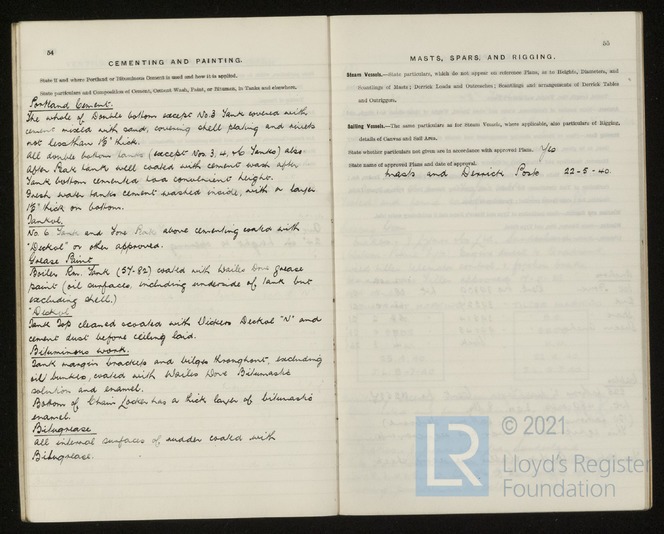 54
CEMENTING AND PAINTING.
State if and where Portland or Bituminous Cement is used and how it is applied.
State particulars and Composition of Cement, Cement Wash, Paint, or Bitumen, in Tanks and elsewhere.
Portland Cement.
The whole of Double bottom except No.3 Tank covered with
cement mixed with sand, covering shell plating and rivets
not less than 1½" thick.
All double bottom tanks (except Nos. 3, 4, & 6 Tanks) also
After Peak tank well coated with cement wash after
Tank bottom cemented to a convenient height.
Fresh water tanks cement washed inside, with a layer
1½" thick on bottom.
No. 6 Tank and Fore Peak above cementing coated with
"Deckol" or other approved.
Grease Paint
Boiler Rm. Tank (57-82) coated with Wailes Dove grease
paint (oil surfaces, including underside of Tank but
excluding shell.)
"Deckol
Tank Top cleaned & coated with Vickers Deckol "N" and
cement dust before ceiling laid.
Bituminous work.
Tank margin brackets and bilges throughout, excluding
oil bunkers, coated with Wailes Dove Bitumastic
solution and enamel.
Bottom of Chain Locker has a thick layer of bitumastic
enamel.
Bitugrease
All internal surfaces of rudder coated with
Bitugrease.
55
MASTS, SPARS, AND RIGGING.
Steam Vessels.—State particulars, which do not appear on reference Plans, as to Heights, Diameters, and
Scantlings of Masts; Derrick Loads and Outreaches; Scantlings and arrangements of Derrick Tables
and Outriggers.
Sailing Vessels.—The same particulars as for Steam Vessels, where applicable, also particulars of Rigging,
details of Canvas and Sail Area.
State whether particulars not given are in accordance with approved Plans. Yes
State name of approved Plans and date of approval.
Masts and Derrick Posts 22-5-40.
LR
© 2021
Lloyd's Register
Foundation